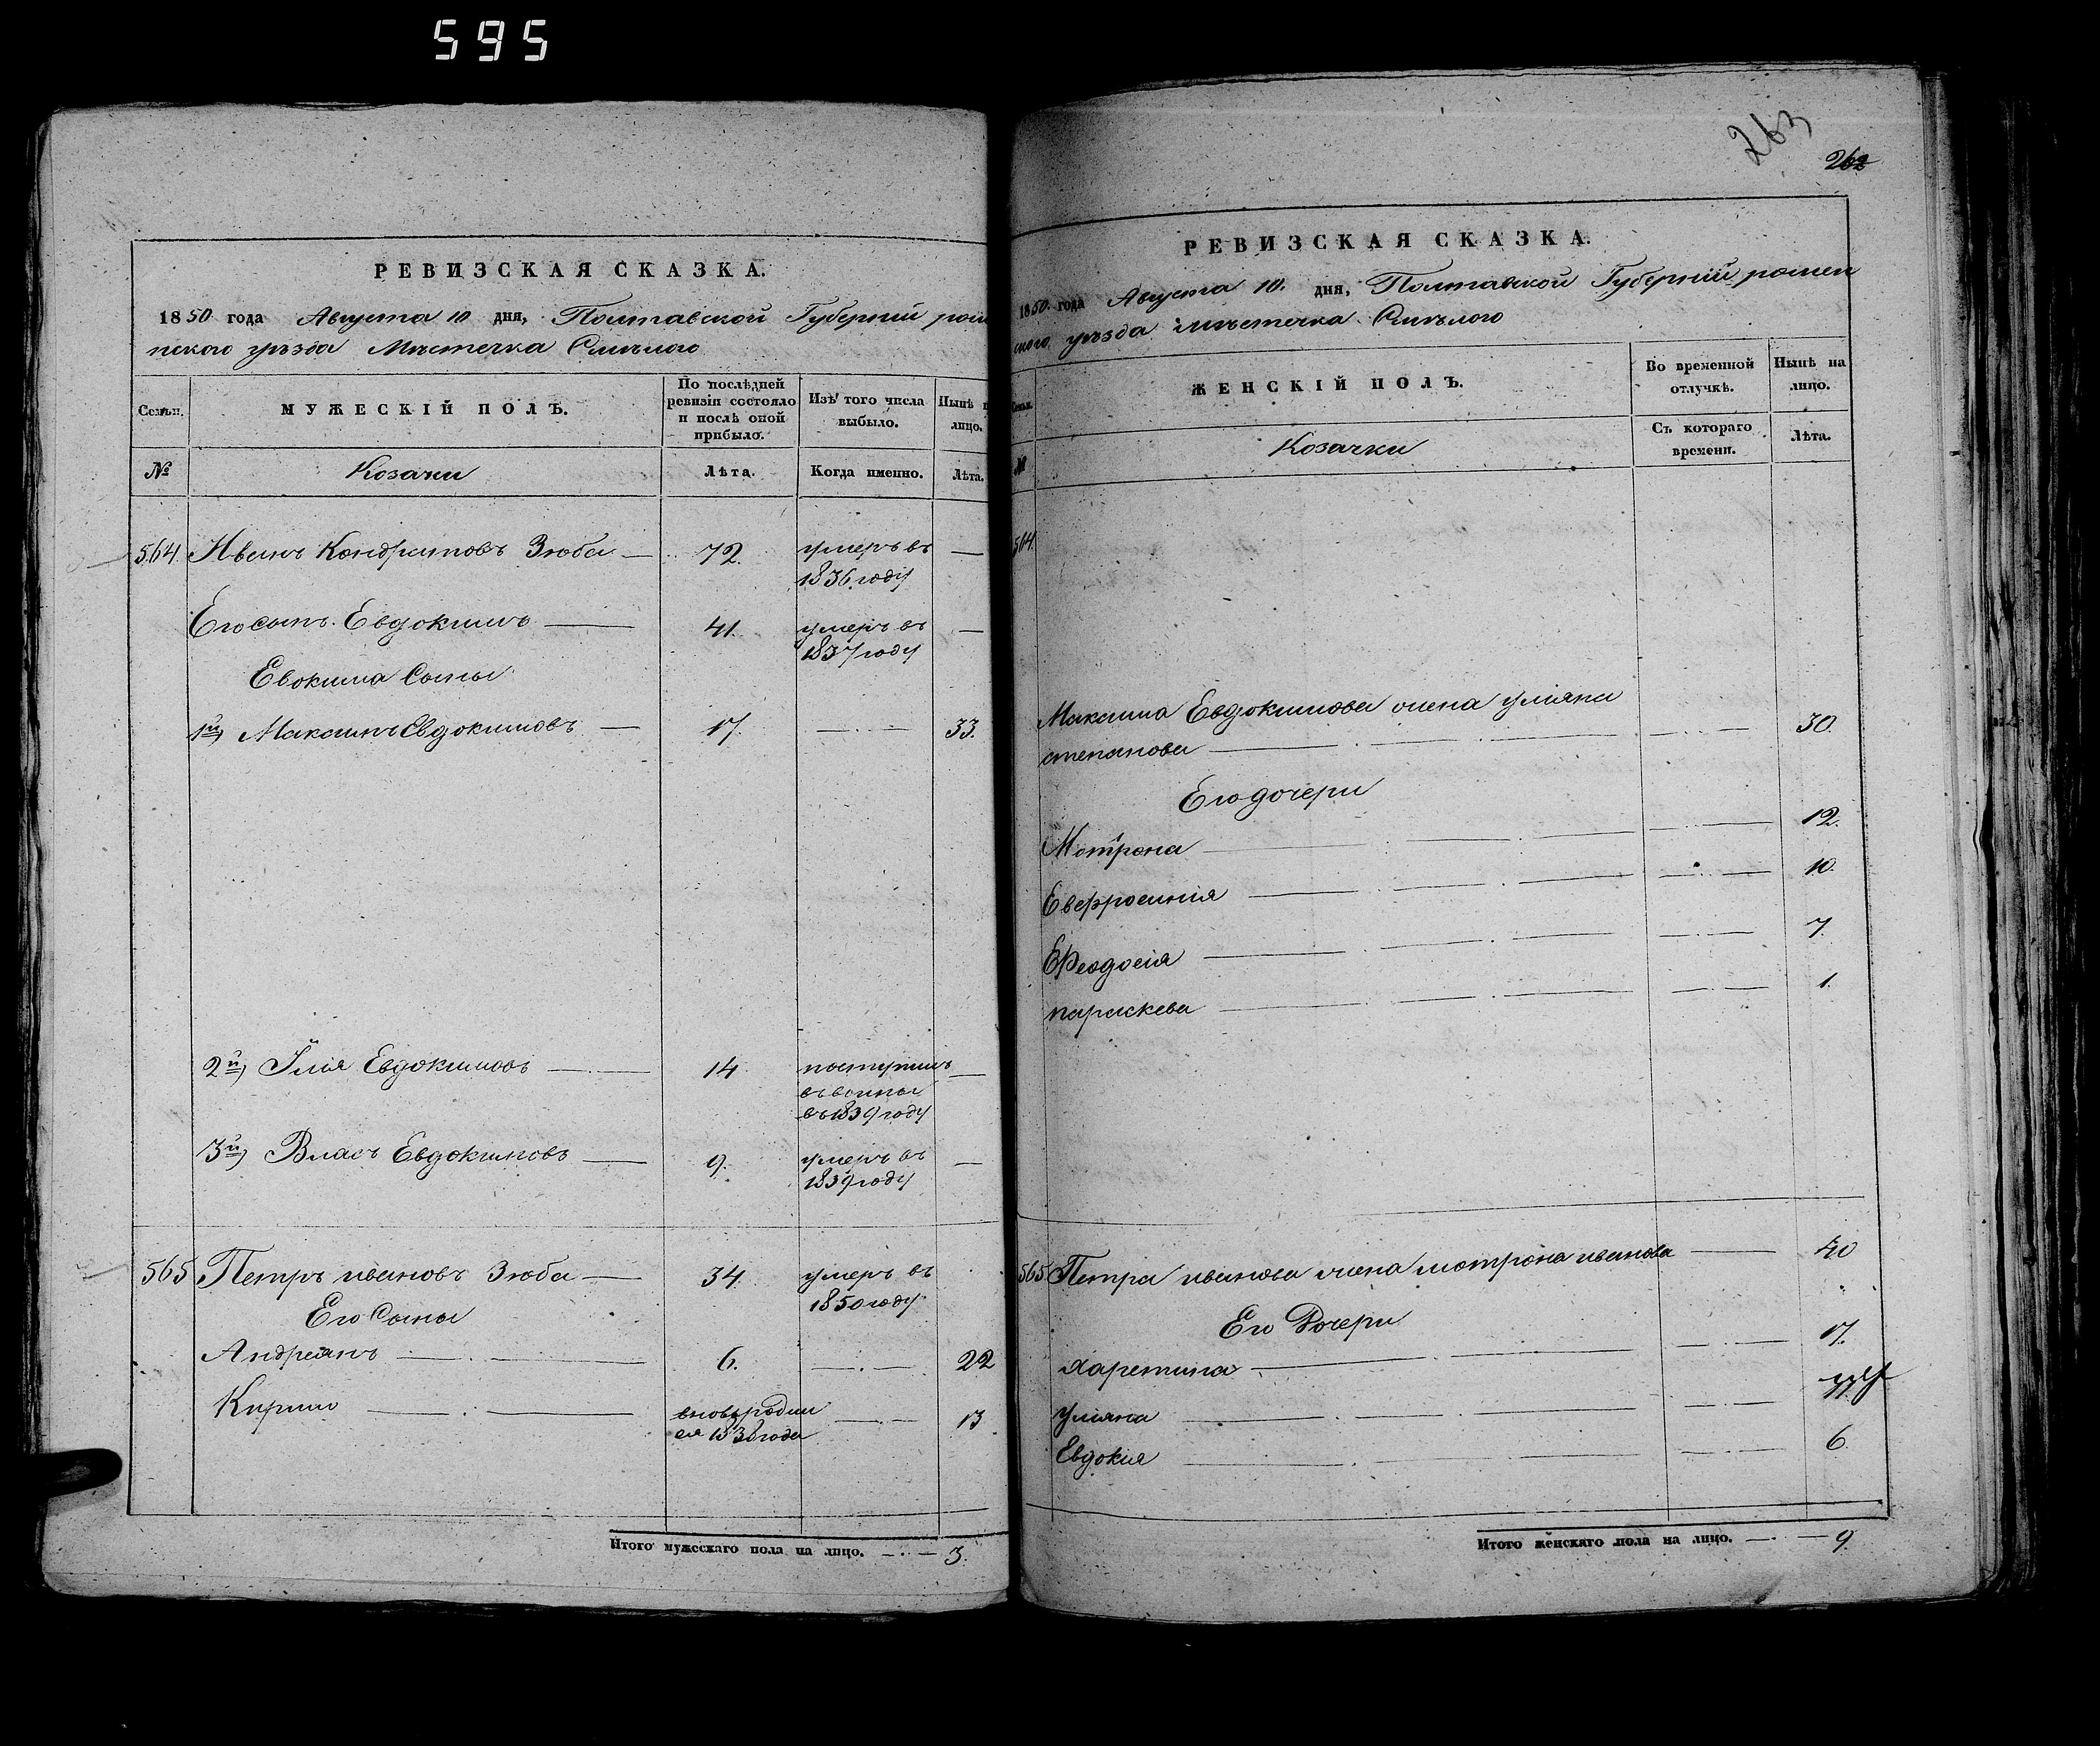 595
РЕВИЗСКАЯ СКАЗКА.
1850 года Августа 10 дня, Полтавской Губерніи ромен
нского уѣзда Мѣстечка Смѣлого
Семьи.
МУЖЕСКІЙ ПОЛЪ.
По послѣдней ревизіи состояло и послѣ оной прибыло.
Изъ того числа выбыло.
Нынѣ на лицо.
№
Козаки
Лѣта.
Когда именно.
Лѣта.
564. Иванъ Кондратовъ Зюба — 72. умеръ въ —
1836 году
Его сынъ Евдокимъ — 41. умеръ въ —
1837 году
Евокима Сыны
1й) Максимъ Евдокимовъ — 17. — . — 33.
2й) Илія Евдокимовъ — 14 поступилъ —
въ воины
въ 1839 году
3й) Власъ Евдокимовъ — 9. умеръ въ —
1839 году
565 Петръ ивановъ Зюба — 34. умеръ въ
1850 году
Его Сыны
Андреянъ — . — 6. — . — 22
Кирило — . — вновь родил — . — 13
ся 1838 года
Итого мужескаго пола на лицо. — . — 3.
263
262
РЕВИЗСКАЯ СКАЗКА.
1850 года Августа 10. дня, Полтавской Губерніи ромен
ского уѣзда мѣстечка Смѣлого
Семьи.
ЖЕНСКІЙ ПОЛЪ.
Во временной отлучкѣ.
Нынѣ на лицо.
№
Козачки
Съ котораго времени.
Лѣта.
564
Максима Евдокимова жена уліяна
степанова — . — . — — . — 30.
Его дочери
Мотрона — . — . — — . — 12.
Евфросинія — . — . — — . — 10.
Феодосія — . — . — — . — 7.
параскева — . — . — — . — 1.
565 Петра иванова жена мотрона иванова — 40
Его Дочери
Харетина — . — — . — 17.
Уліяна — . — . — — . —
Евдокия — . — — . — 6.
Итого женскяго пола на лицо. — . — 9.